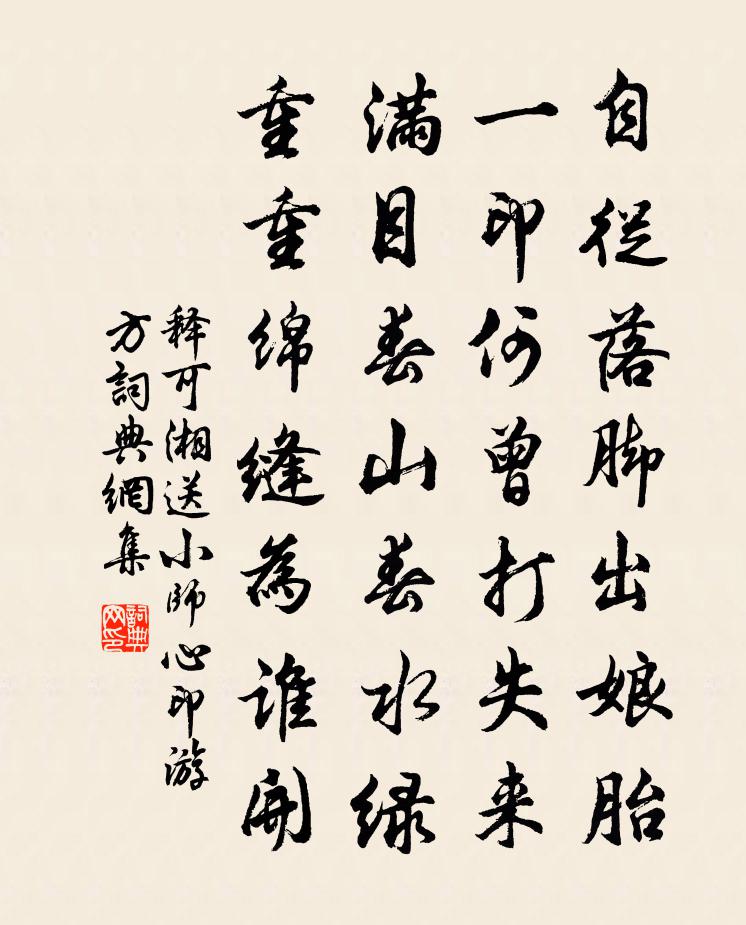 自從落脚出娘胎
一印何曾打失来
滿目春山春水緑
重重綿縫為誰開
释可湘送小師心印游
方詞典網集
詞典
网印